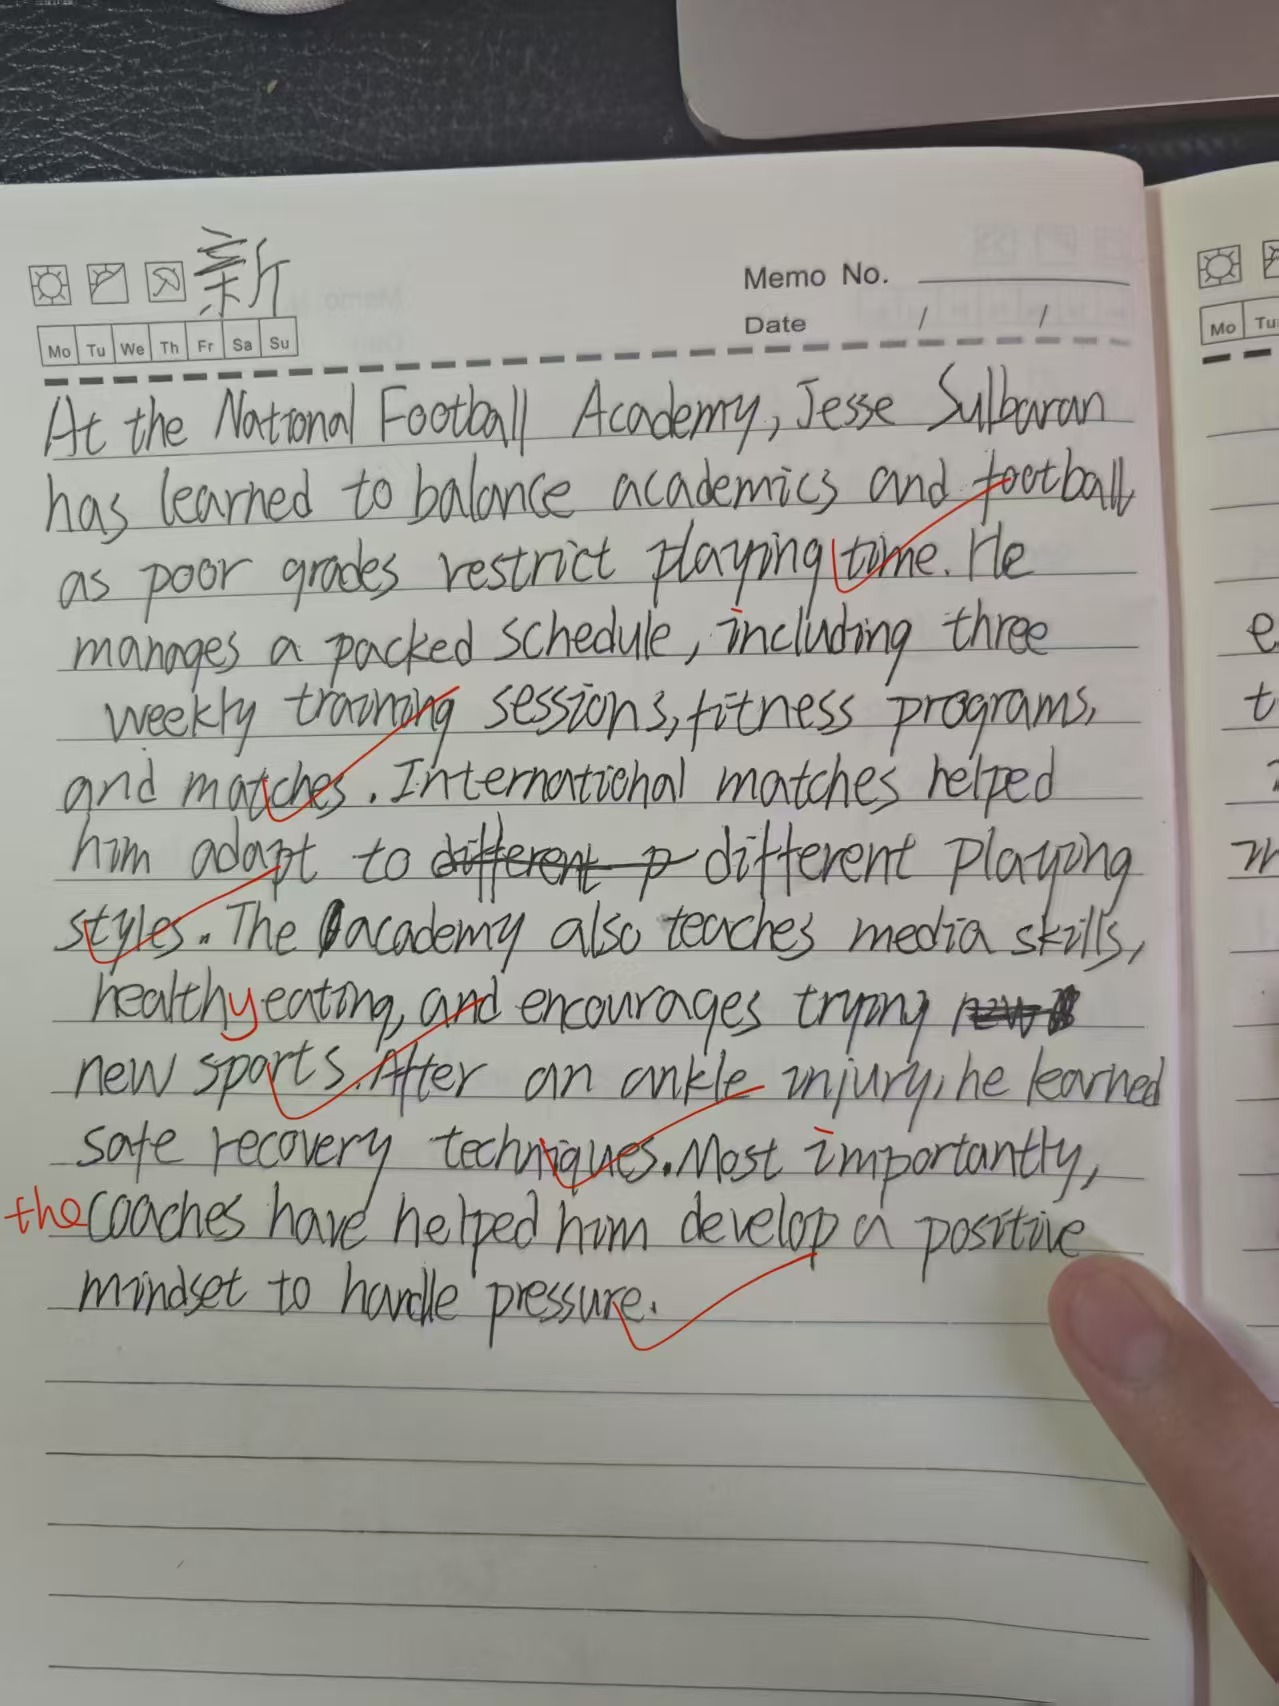 新
Memo No.
Date / /
Mo Tu We Th Fr Sa Su
At the National Football Academy, Jesse Sulbaran
has learned to balance academics and football,
as poor grades restrict playing time. He
manages a packed schedule, including three
weekly training sessions, fitness programs,
and matches. International matches helped
him adapt to different p different playing
styles. The academy also teaches media skills,
healthy eating, and encourages trying new
new sports. After an ankle injury, he learned
safe recovery techniques. Most importantly,
the coaches have helped him develop a positive
mindset to handle pressure.
Mo Tu
e
t
m